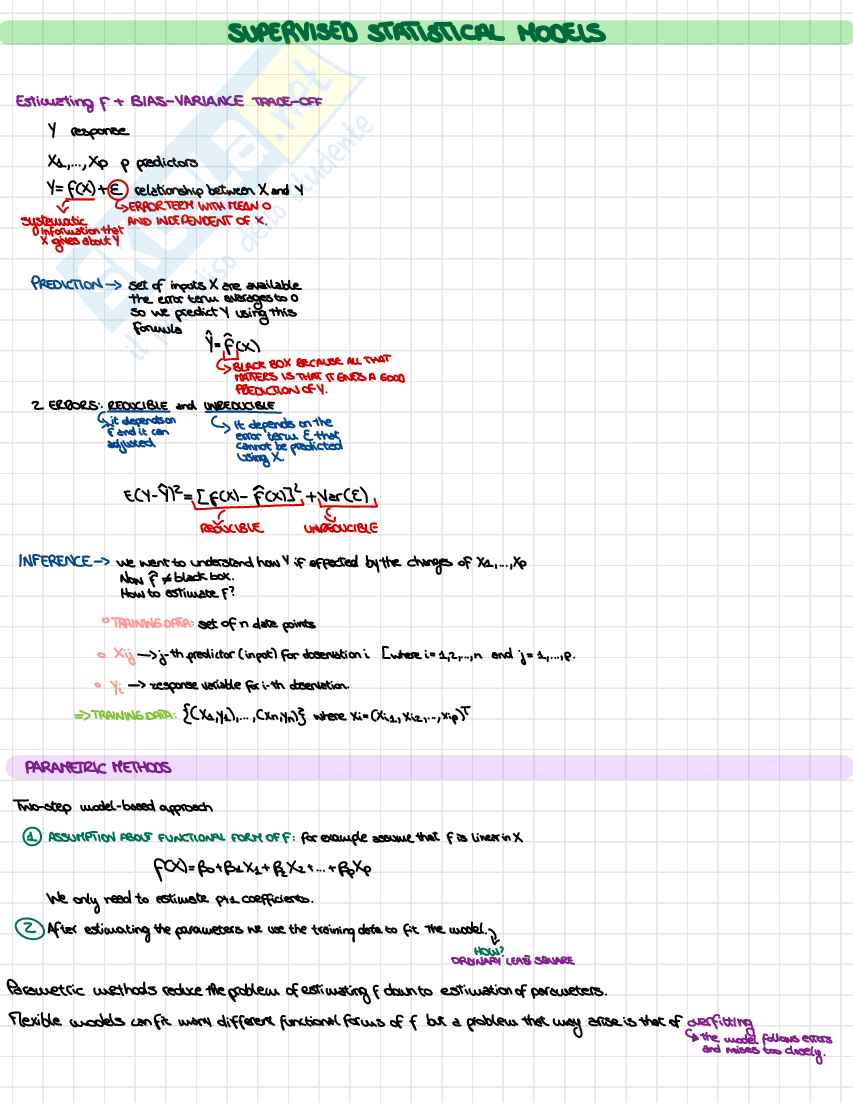 SUPERVISED STATISTICAL MODELS
Estimating f + BIAS-VARIANCE TRADE-OFF
Y response
X1,...,Xp p predictors
Y = f(X) + ε relationship between X and Y
ERROR TERM WITH MEAN 0
AND INDEPENDENT OF X.
systematic
information that
X gives about Y
PREDICTION → set of inputs X are available
the error term averages to 0
so we predict Y using this
formula
Ŷ = f̂(X)
BLACK BOX BECAUSE ALL THAT
MATTERS IS THAT IT GIVES A GOOD
PREDICTION OF Y.
2 ERRORS: REDUCIBLE and UNREDUCIBLE
it depends on
f and it can
adjusted
It depends on the
error term ε that
cannot be predicted
using X.
E(Y-Ŷ)² = [f(X) - f̂(X)]² + Var(ε)
REDUCIBLE UNREDUCIBLE
INFERENCE → we want to understand how Y if affected by the changes of X1,...,Xp
Now f̂ ≠ black box.
How to estimate f?
TRAINING DATA: set of n data points
Xij → j-th predictor (input) for observation i [where i = 1,2,...,n and j = 1,...,p.
Yi → response variable for i-th observation.
=> TRAINING DATA: {(x1,y1),...,(xn,yn)} where xi = (xi1, xi2,..., xip)ᵀ
PARAMETRIC METHODS
Two-step model-based approach
1 ASSUMPTION ABOUT FUNCTIONAL FORM OF F: for example assume that f is linear in X
f(X) = β0 + β1X1 + β2X2 + ... + βpXp
We only need to estimate p+1 coefficients.
2 After estimating the parameters we use the training data to fit the model.
HOW?
ORDINARY LEAST SQUARE
Parametric methods reduce the problem of estimating f down to estimation of parameters.
Flexible models can fit many different functional forms of f but a problem that may arise is that of overfitting
the model follows errors
and noises too closely.